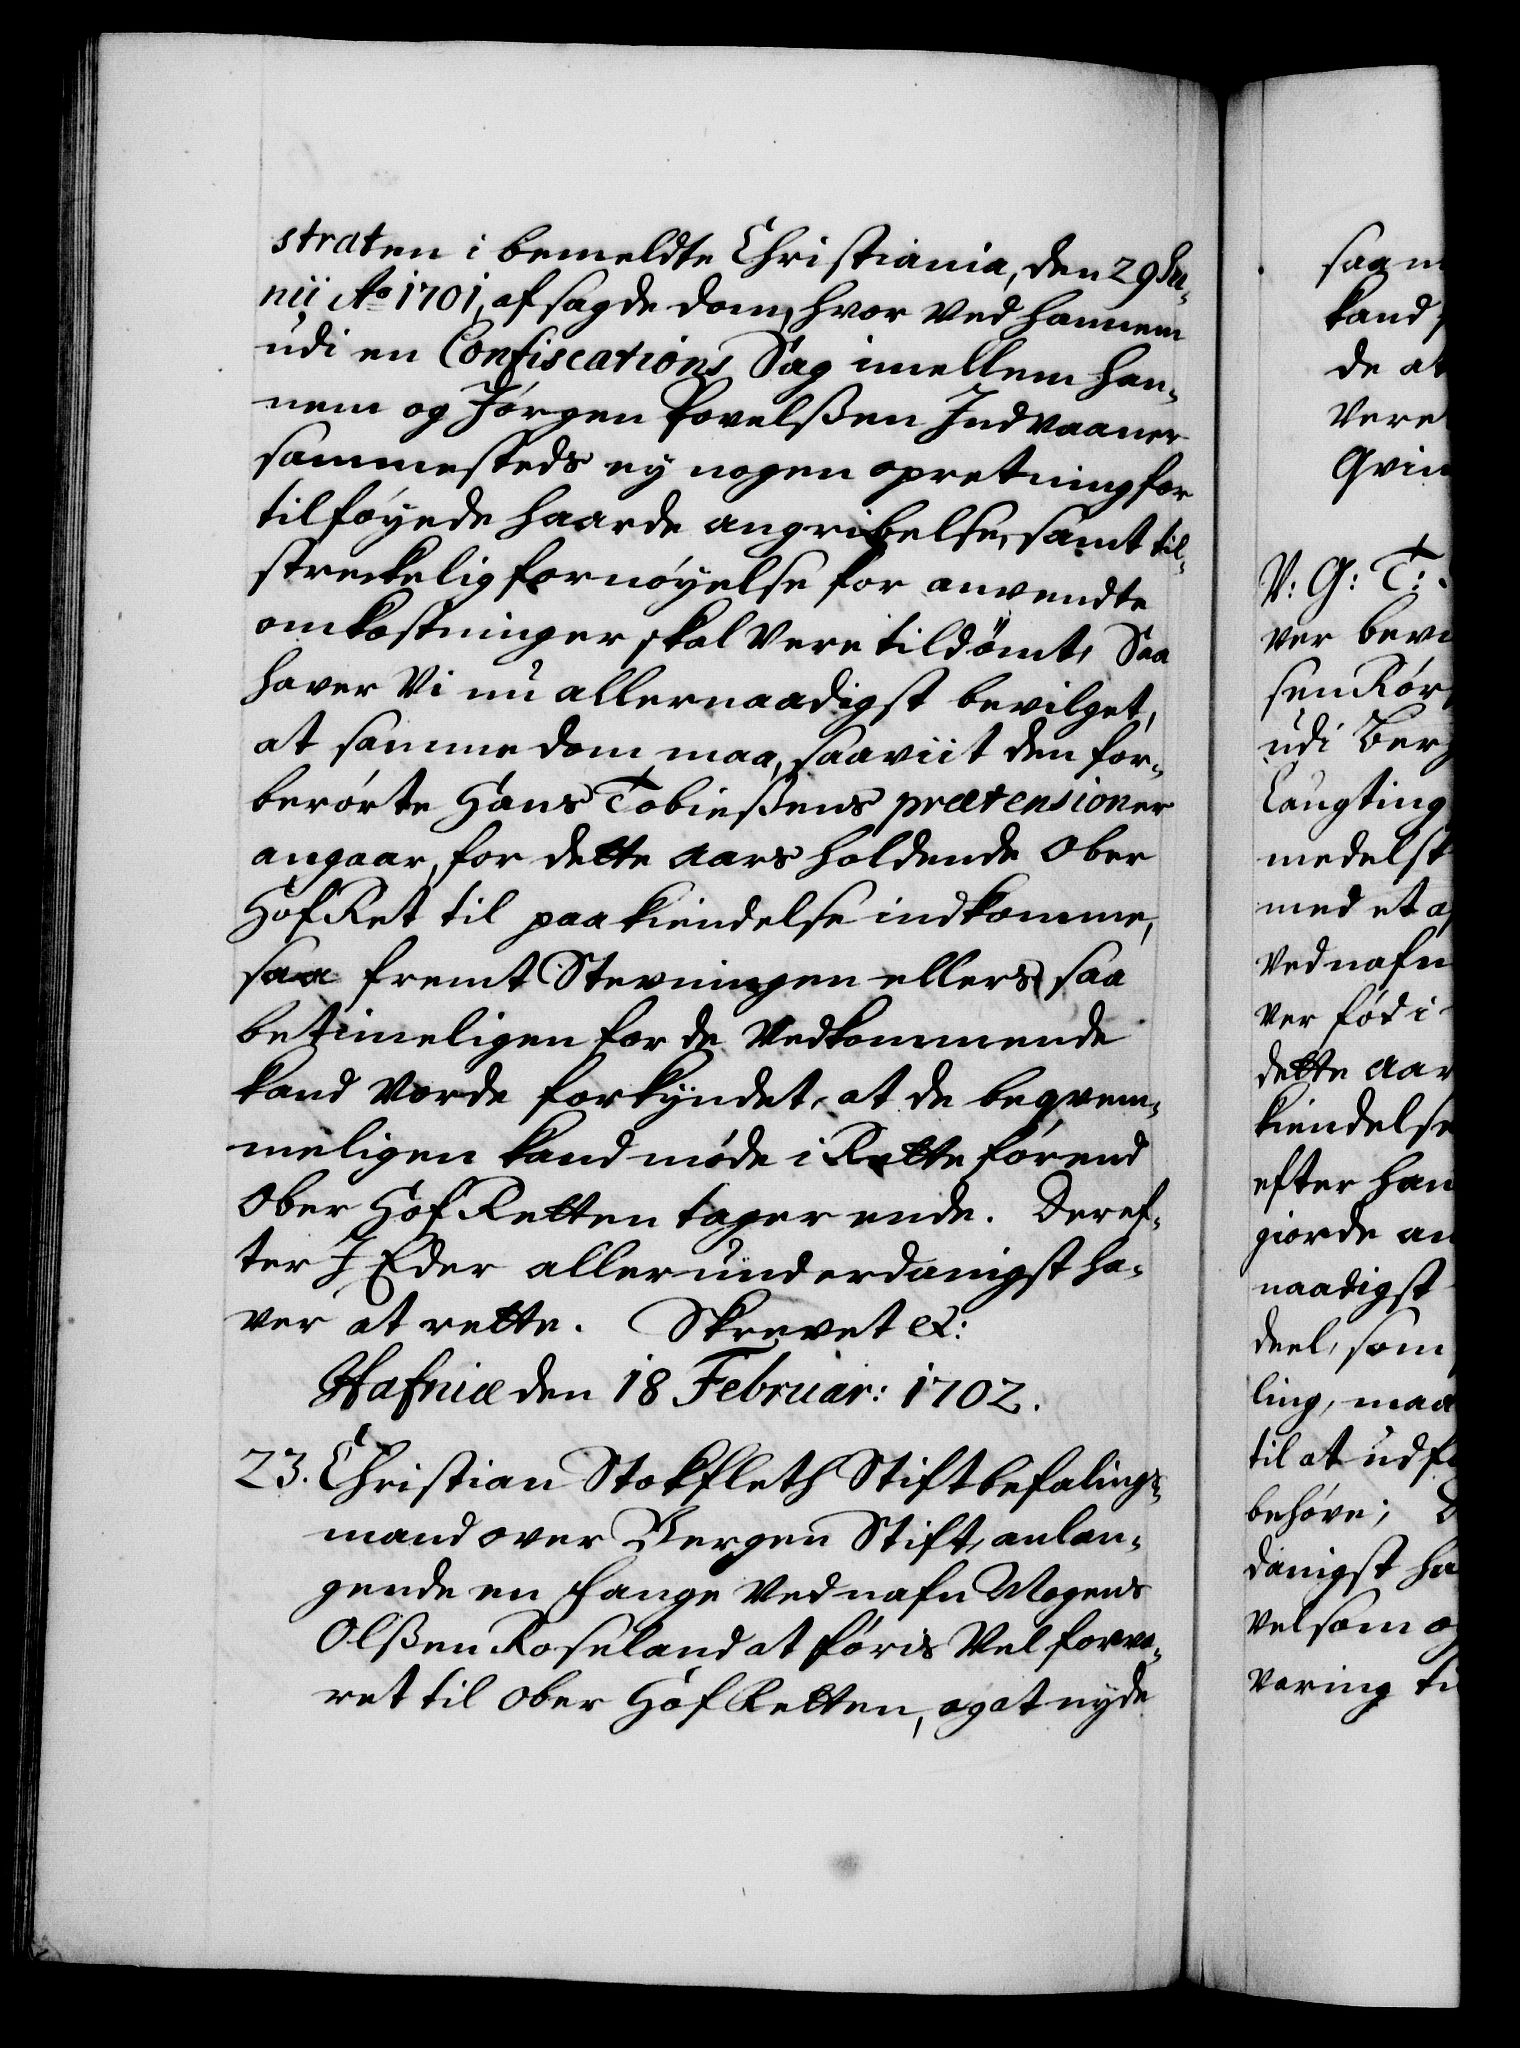 straten i bemeldte Christiania, den 29 Ju-
nii Ao 1701, afsagde dom, hvor ved hannem
udi en Confiscations Sag imellem han-
nem og Jørgen Povelßen Indvaaner
sammesteds ej nogen opretning for
tilføyede haarde angribelse, samt til-
streckelig fornøyelse for anvendte
omkostninger skal Vere tildømt, Saa
haver Vi nu allernaadigst bevilget,
at samme dom maa, saaviit den for-
berørte Hans Tobießens prætensioner
angaar, for dette Aars holdende Ober
HofRet til paakiendelse indkomme,
saa fremt Stevningen ellers saa
betimeligen for de Vedkommende
kand Vorde forkyndet, at de beqvem-
meligen kand møde i Rette førend
Ober Hof Retten tager ende. Deref-
ter I Eder allerunderdanigst ha-
ver at rette. Skrevet &:
Hafniæ den 18 Februar: 1702.
23. Christian Stokfleth Stiftbefalings-
mand over Bergen Stift, anlan-
gende en fange Ved nafn Mogens
Olßen Roseland at føris Vel forva-
ret til Ober Hof Retten, og at nyde
saa
kand
de at
Vere
Qvin
V: G: T:
ver bevi
sen Rør
udi Berg
Laugting
medelst
med et a
Ved nafn
Ver fød i
dette Aar
kiendelse
efter han
giorde an
naadigst
deel, som
ling, maa
til at udf
behøve; D
danigst ha
Vel som og
Varing ti